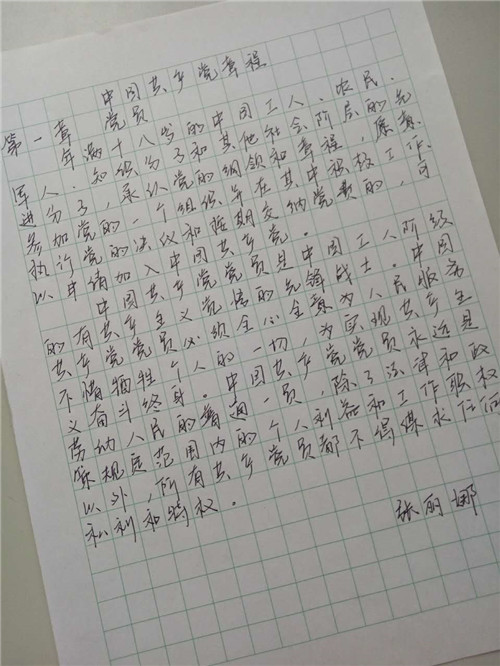 中国共产党章程
第一章 党员
年满十八岁的中国工人、农民、
军人、知识分子和其他社会阶层的先
进分子，承认党的纲领和章程，愿意
参加党的一个组织并在其中积极工作、
执行党的决议和按期交纳党费的，可
以申请加入中国共产党。
中国共产党党员是中国工人阶级
的有共产主义觉悟的先锋战士。中国
共产党党员必须全心全意为人民服务
不惜牺牲个人的一切，为实现共产主
义奋斗终身。中国共产党党员永远是
劳动人民的普通一员，除了法律和政
策规定范围内的个人利益和工作职权
以外，所有共产党员都不得谋求任何
私利和特权。
张丽娜